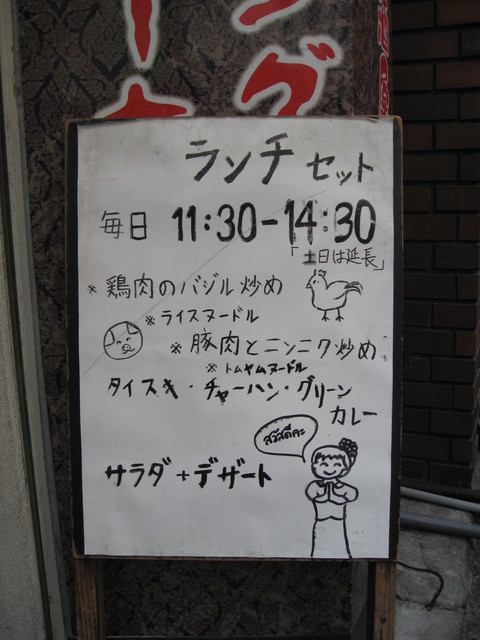 ング
ランチ セット
毎日 11:30-14:30
「土日は延長」
※鶏肉のバジル炒め
※ライスヌードル
※豚肉とニンニク炒め
※トムヤムヌードル
タイスキ・チャーハン・グリーン
カレー
สวัสดีค่ะ
サラダ+デザート